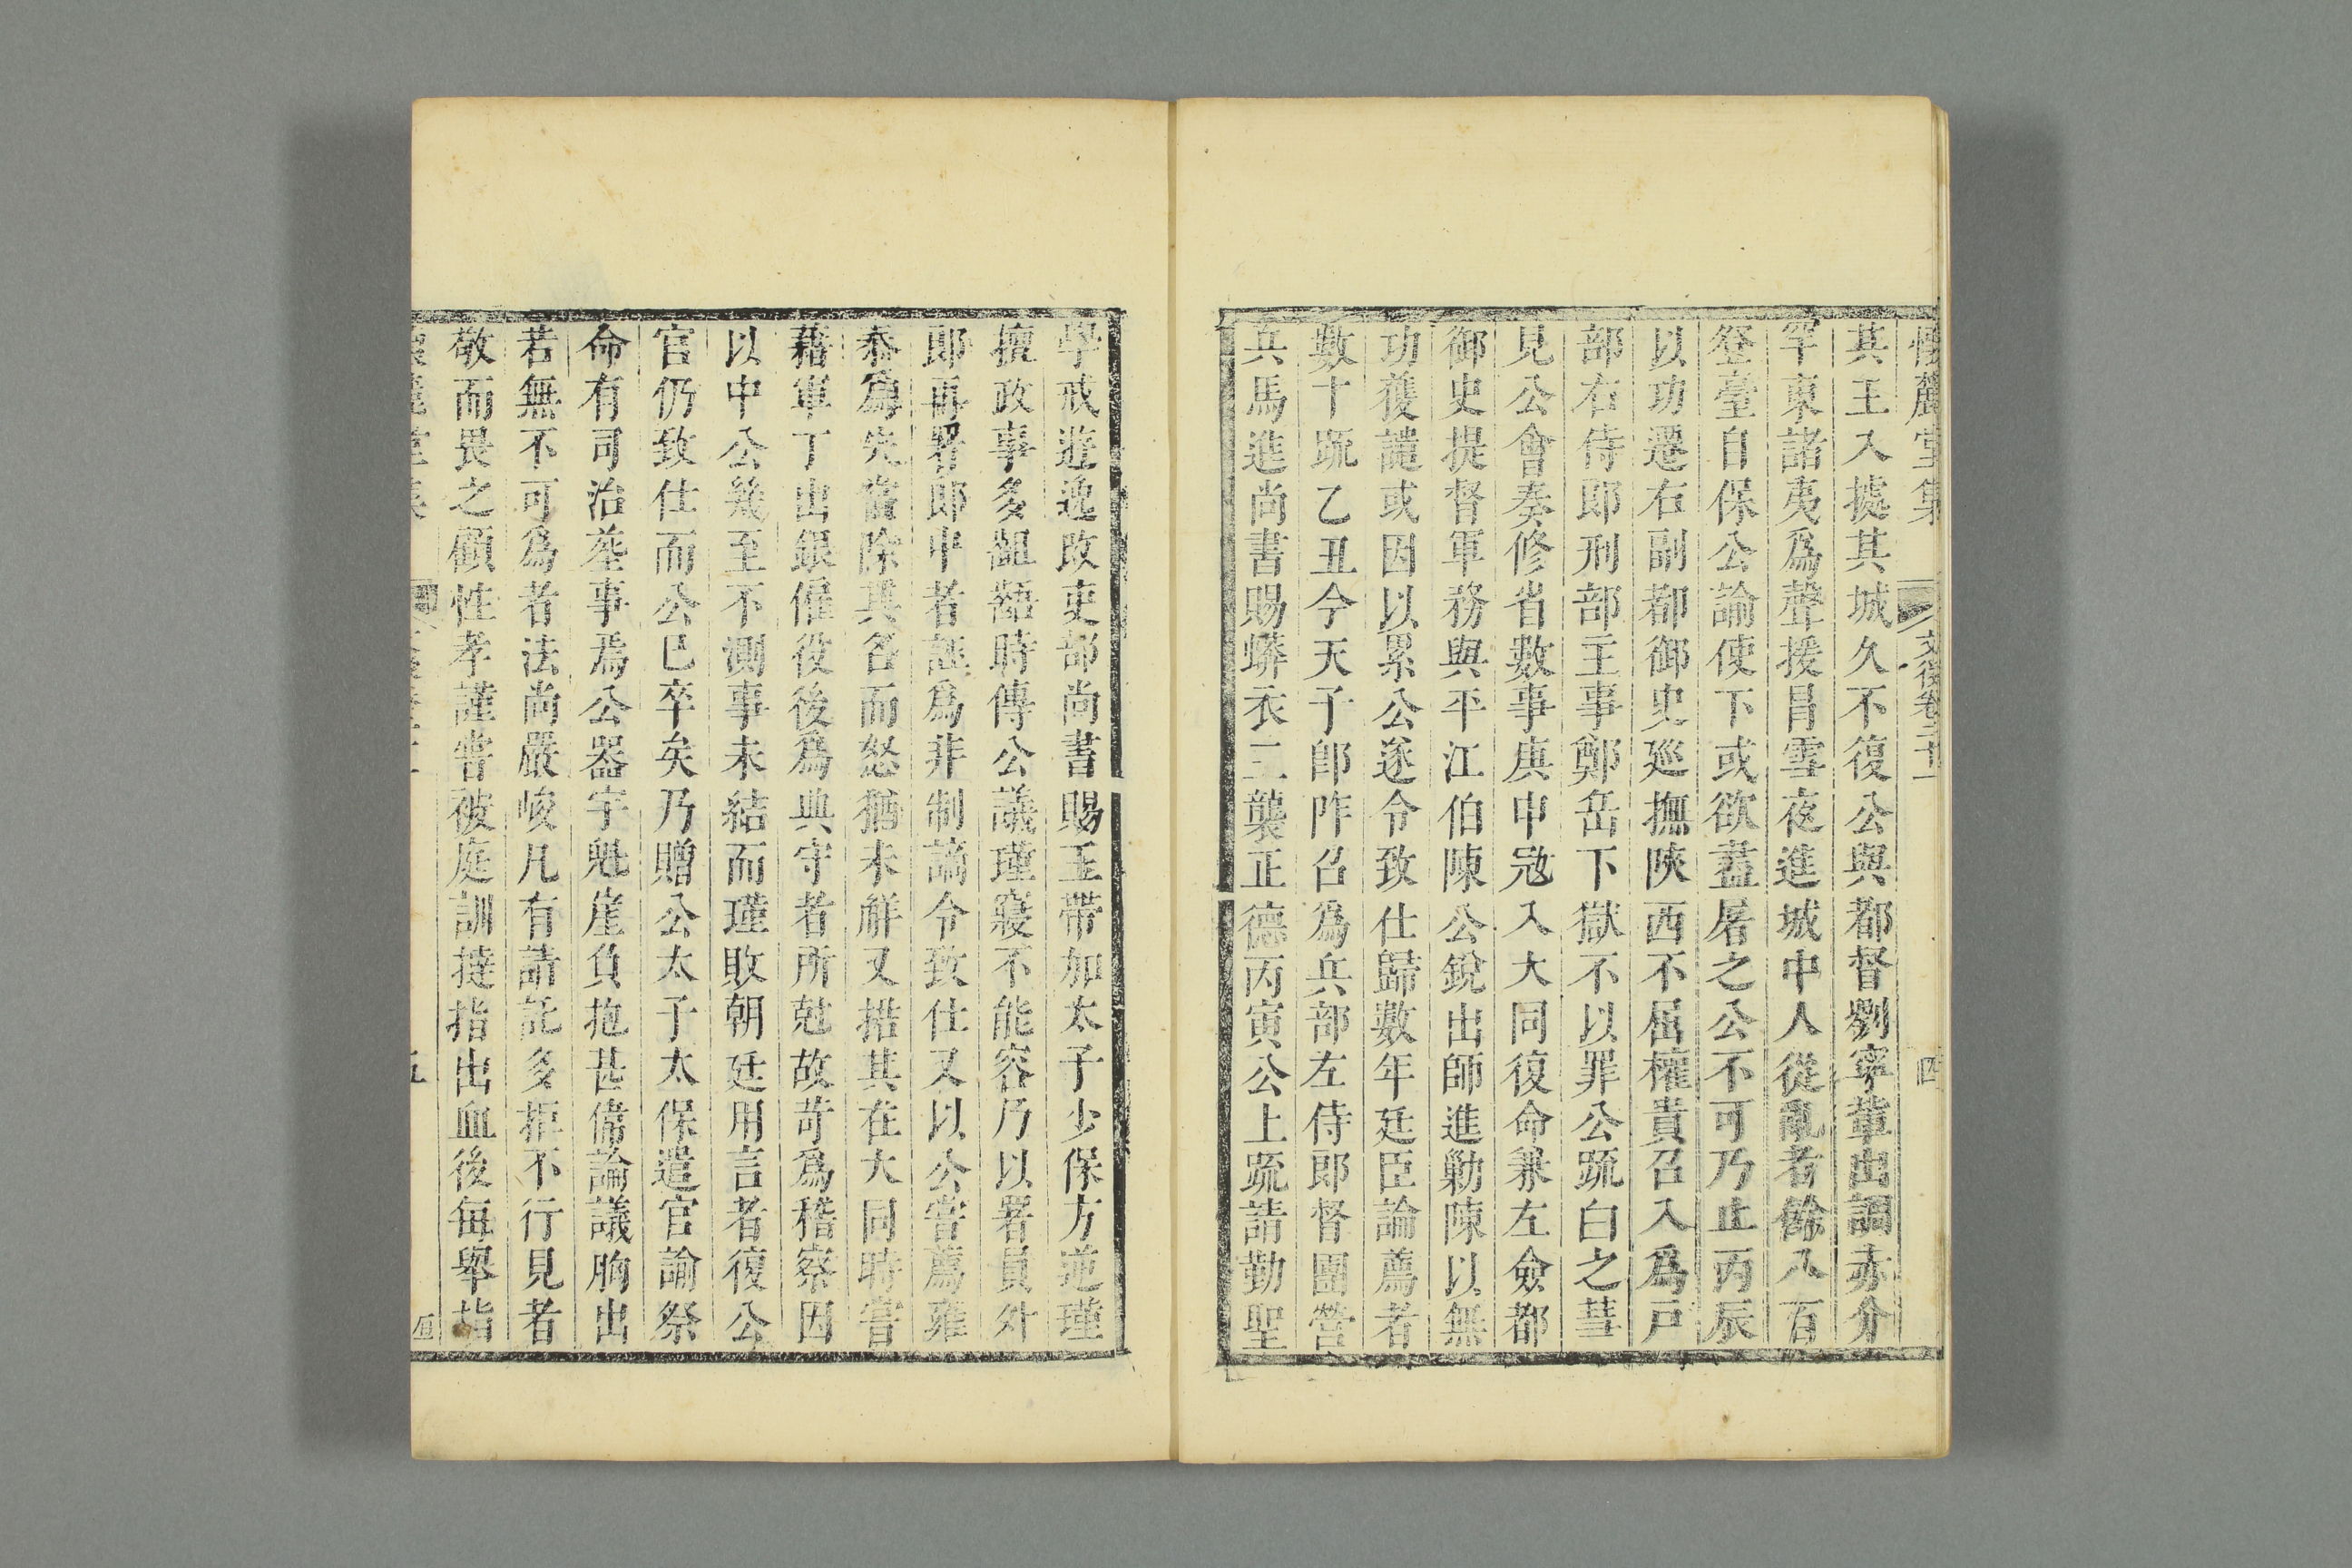 懷麓堂集 文後卷二十一 四
其王入據其城久不復公與都督劉寧輩出調赤斤
罕東諸夷為聲援冒雪夜進城中人從亂者餘八百
登臺自保公諭使下或欲盡屠之公不可乃止丙辰
以功遷右副都御史廵撫陝西不屈權貴召入爲戸
部右侍郎刑部主事鄭岳下獄不以罪公䟽白之彗
見公會奏修省數事庚申冦入大同復命兼左僉都
御史提督軍務與平江伯陳公銳出師進勦陳以無
功獲譴或因以累公遂令致仕歸數年廷臣論薦者
數十䟽乙丑今天子卽阼召爲兵部左侍郎督團營
兵馬進尚書賜蟒衣二襲正德丙寅公上䟽請勤聖
學戒遊逸改吏部尚書賜玉帶加太子少保方逆瑾
擅政事多齟齬時傳公議瑾寖不能容乃以署員外
郎再署郎中者誣爲非制謫令致仕又以公嘗薦雍
泰爲先嘗除其名而怒猶未解又摭其在大同時嘗
藉軍丁出銀僱役後爲典守者所尅故苛爲稽察因
以中公幾至不測事未結而瑾敗朝廷用言者復公
官仍致仕而公巳卒矣乃贈公太子太保遣官諭祭
命有司治塟事焉公器宇魁崖負抱甚偉論議胸出
若無不可爲者法尚嚴峻凡有請託多拒不行見者
敬而畏之顧性孝謹嘗被庭訓撻指出血後每舉指
五